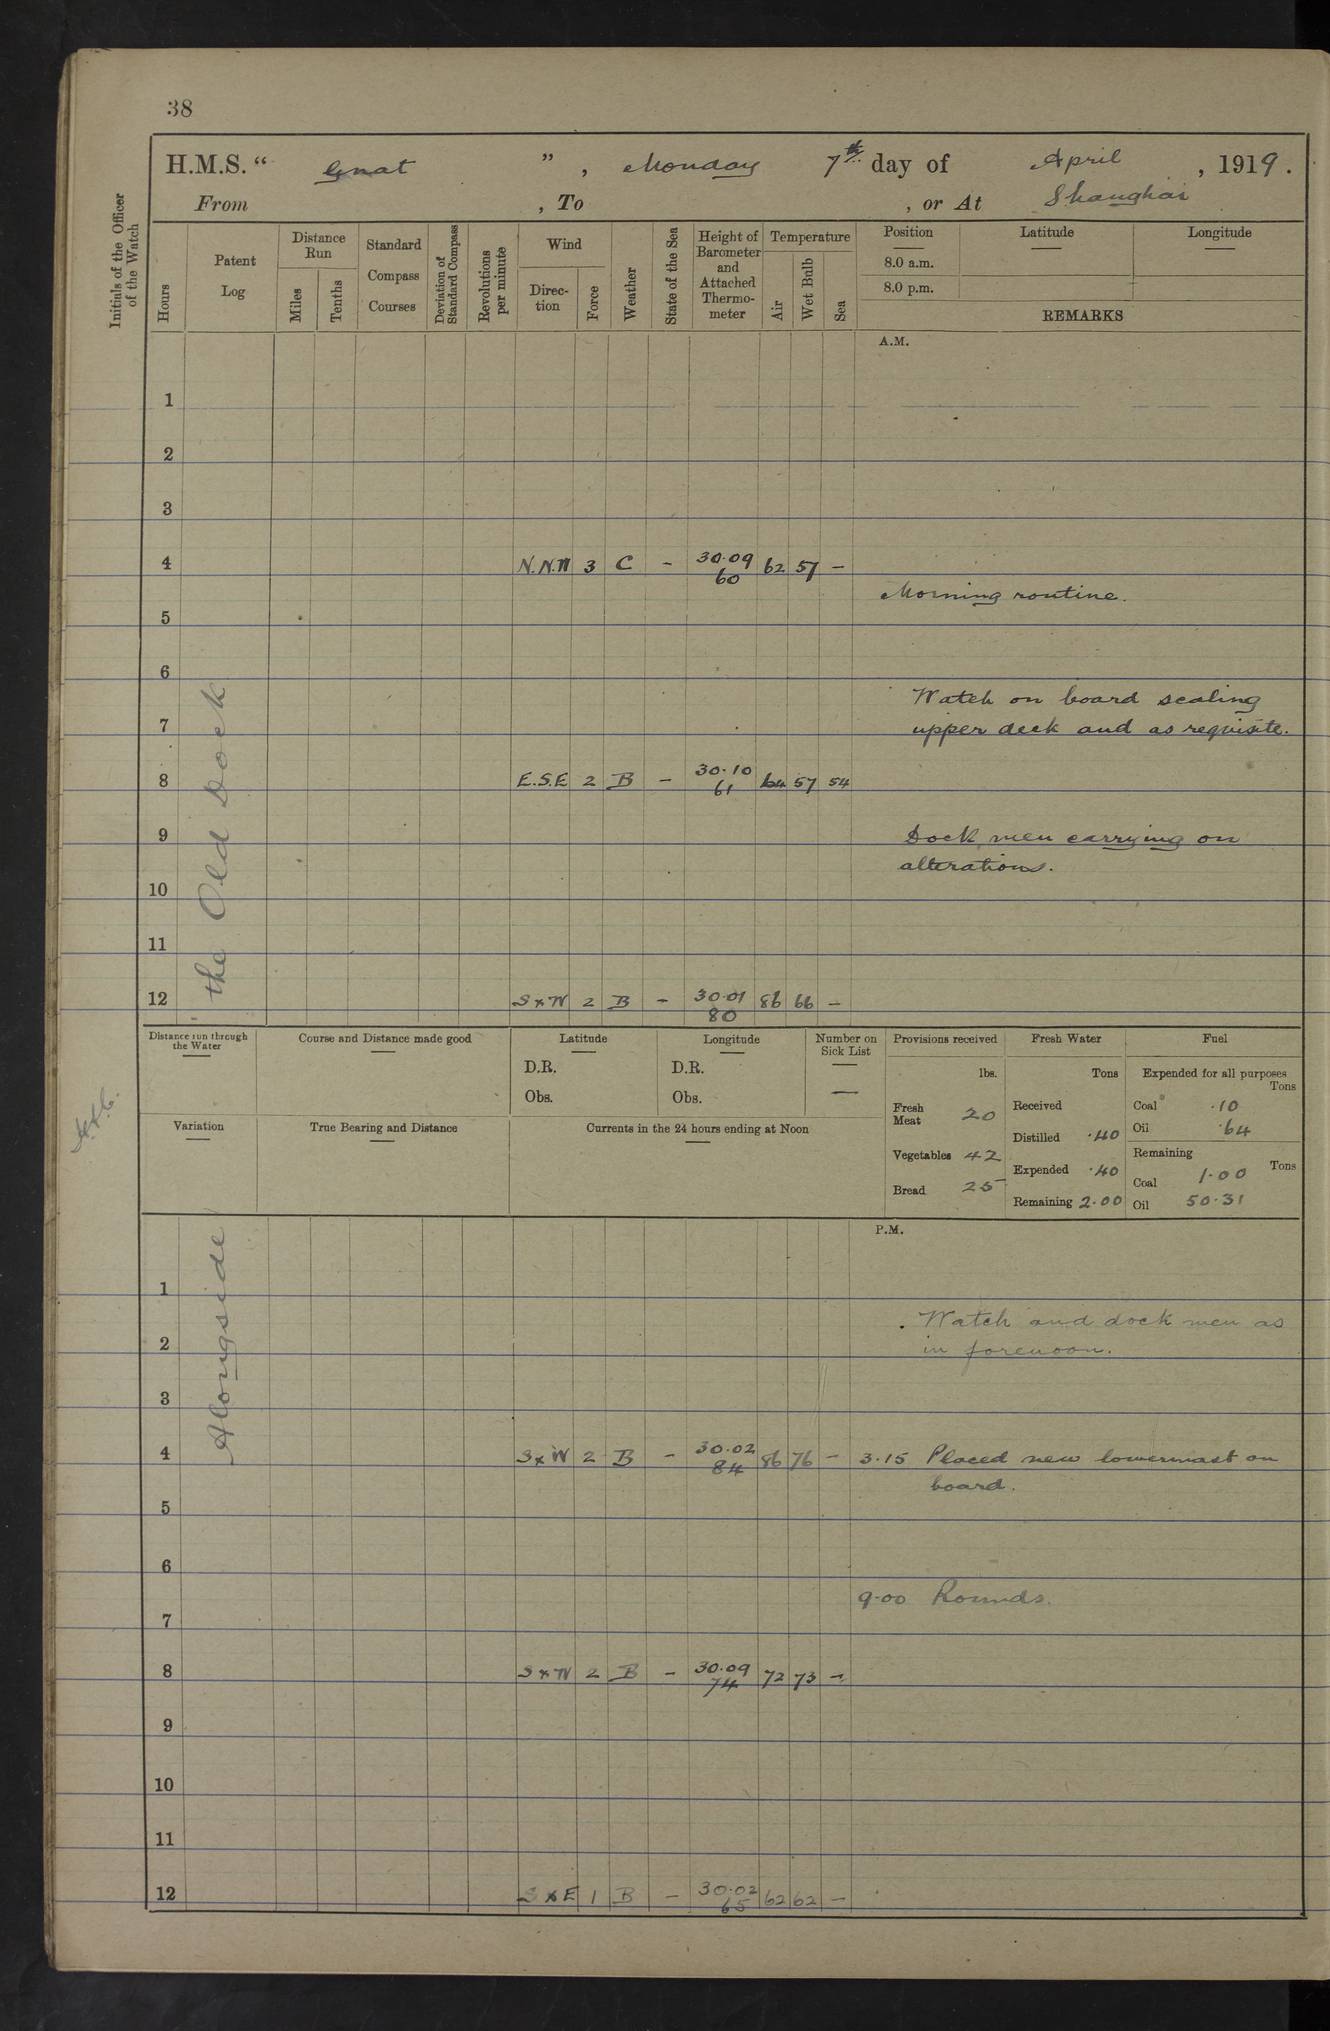 38
H.M.S. “ Gnat ”, Monday 7th day of April, 1919.
From , To , or At Shanghai
Initials of the Officer of the Watch
Hours
Patent Log
Distance Run
Miles
Tenths
Standard Compass Courses
Deviation of Standard Compass
Revolutions per minute
Wind
Direction
Force
Weather
State of the Sea
Height of Barometer and Attached Thermometer
Temperature
Air
Wet Bulb
Sea
Position
Latitude
Longitude
8.0 a.m.
8.0 p.m.
REMARKS
A.M.
1
2
3
4 N.N.W 3 C - 30.09 62 57 -
60
Morning routine.
5
6
Watch on board scaling
7 upper deck and as requisite.
8 E.S.E 2 B - 30.10 64 57 54
61
9 Dock men carrying on
alterations.
10
11
12 S x W 2 B - 30.01 86 66 -
80
Alongside the Old Dock
Distance run through the Water
Course and Distance made good
Latitude
Longitude
Number on Sick List
D.R. D.R.
Obs. Obs. —
Variation
True Bearing and Distance
Currents in the 24 hours ending at Noon
Provisions received
lbs.
Fresh Meat 20
Vegetables 42
Bread 25
Fresh Water
Tons
Received
Distilled .40
Expended .40
Remaining 2.00
Fuel
Expended for all purposes
Tons
Coal .10
Oil .64
Remaining
Tons
Coal 1.00
Oil 50.31
P.M.
1
. Watch and dock men as
2 in forenoon.
3
4 S x W 2 B - 30.02 86 76 - 3.15 Placed new lowermast on
84 board.
5
6
9.00 Rounds.
7
8 S x W 2 B - 30.09 72 73 -
74
9
10
11
12 S x E 1 B - 30.02 62 62 -
65